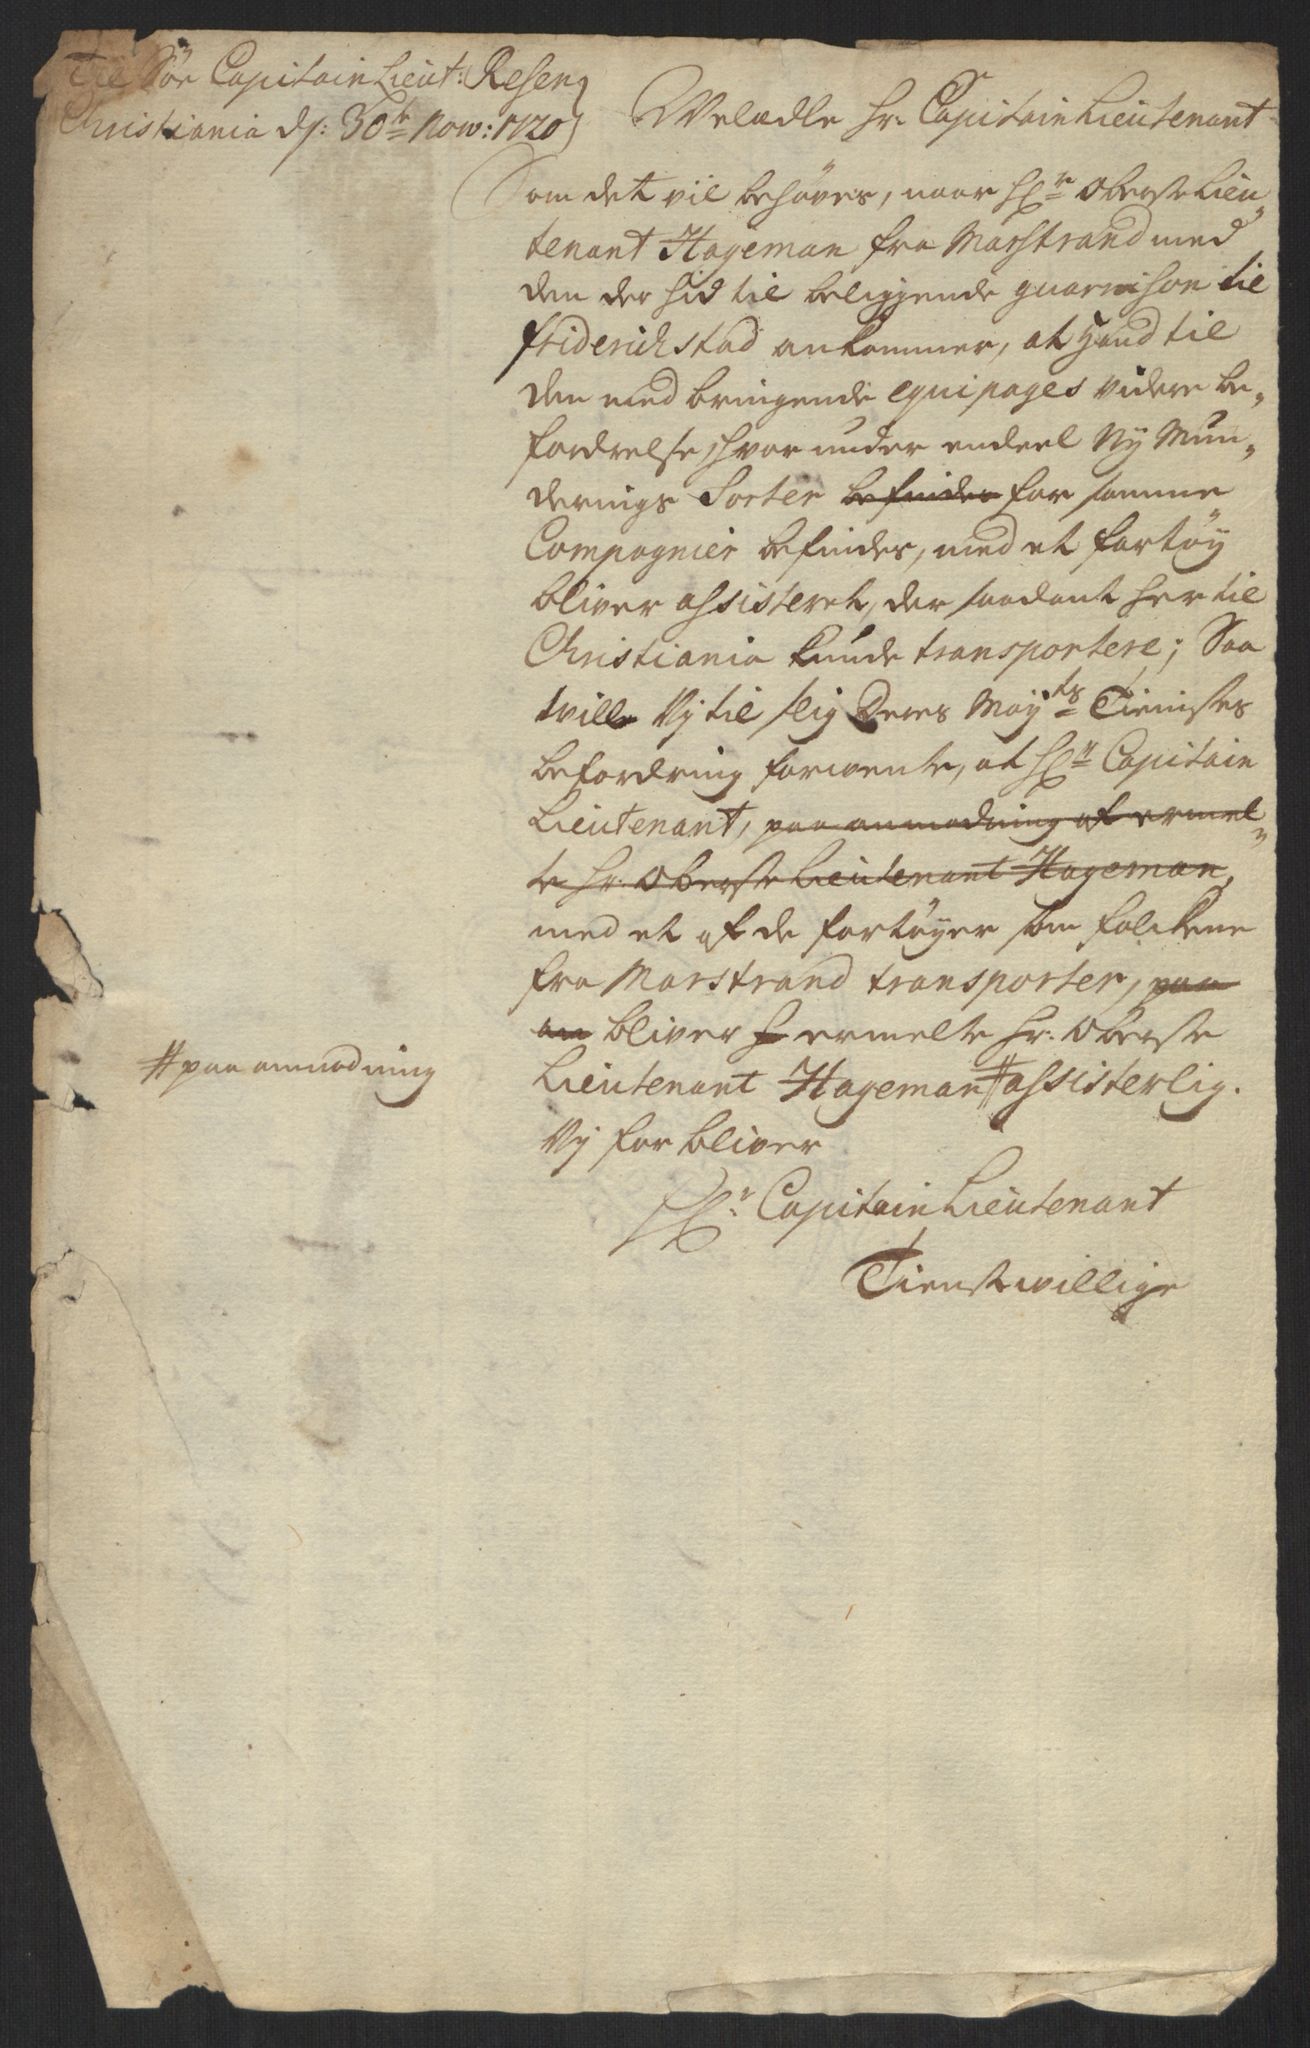 Til Söe Capitain Lieut: Resen
Christiania dn: 30te Now: 1720
Welædle Hr. Capitain Lieutenant
Som det vil behöves, naar Hr Oberste Lieu„
tenant Hageman fra Marstrand med
den der hid til beliggende guarnison til
friderichstad ankommer, at Hand til
den med bringende equipages videre be„
fordrelse, hvor under endeel Ny Mun„
derings Sorter befindes for samme
Compagnier befindes, med et fartöy
bliver assisteret, der saadant her til
Christiania kunde transportere; Saa
wille Vj til slig Deres Mayts Tienistes
befordring forwente, at Hr Capitain
Lieutenant, paa anmodning af ermel„
te Hr. Oberste Lieutenant Hageman,
med et af de fartöyer som folckene
fra Marstrand transporter, paa
an bliver h ermelte Hr. Oberste
Lieutenant Hageman # assisterlig.
# paa anmodning
Vj forbliver
Hr. Capitain Lieutenant
Tienstwillige